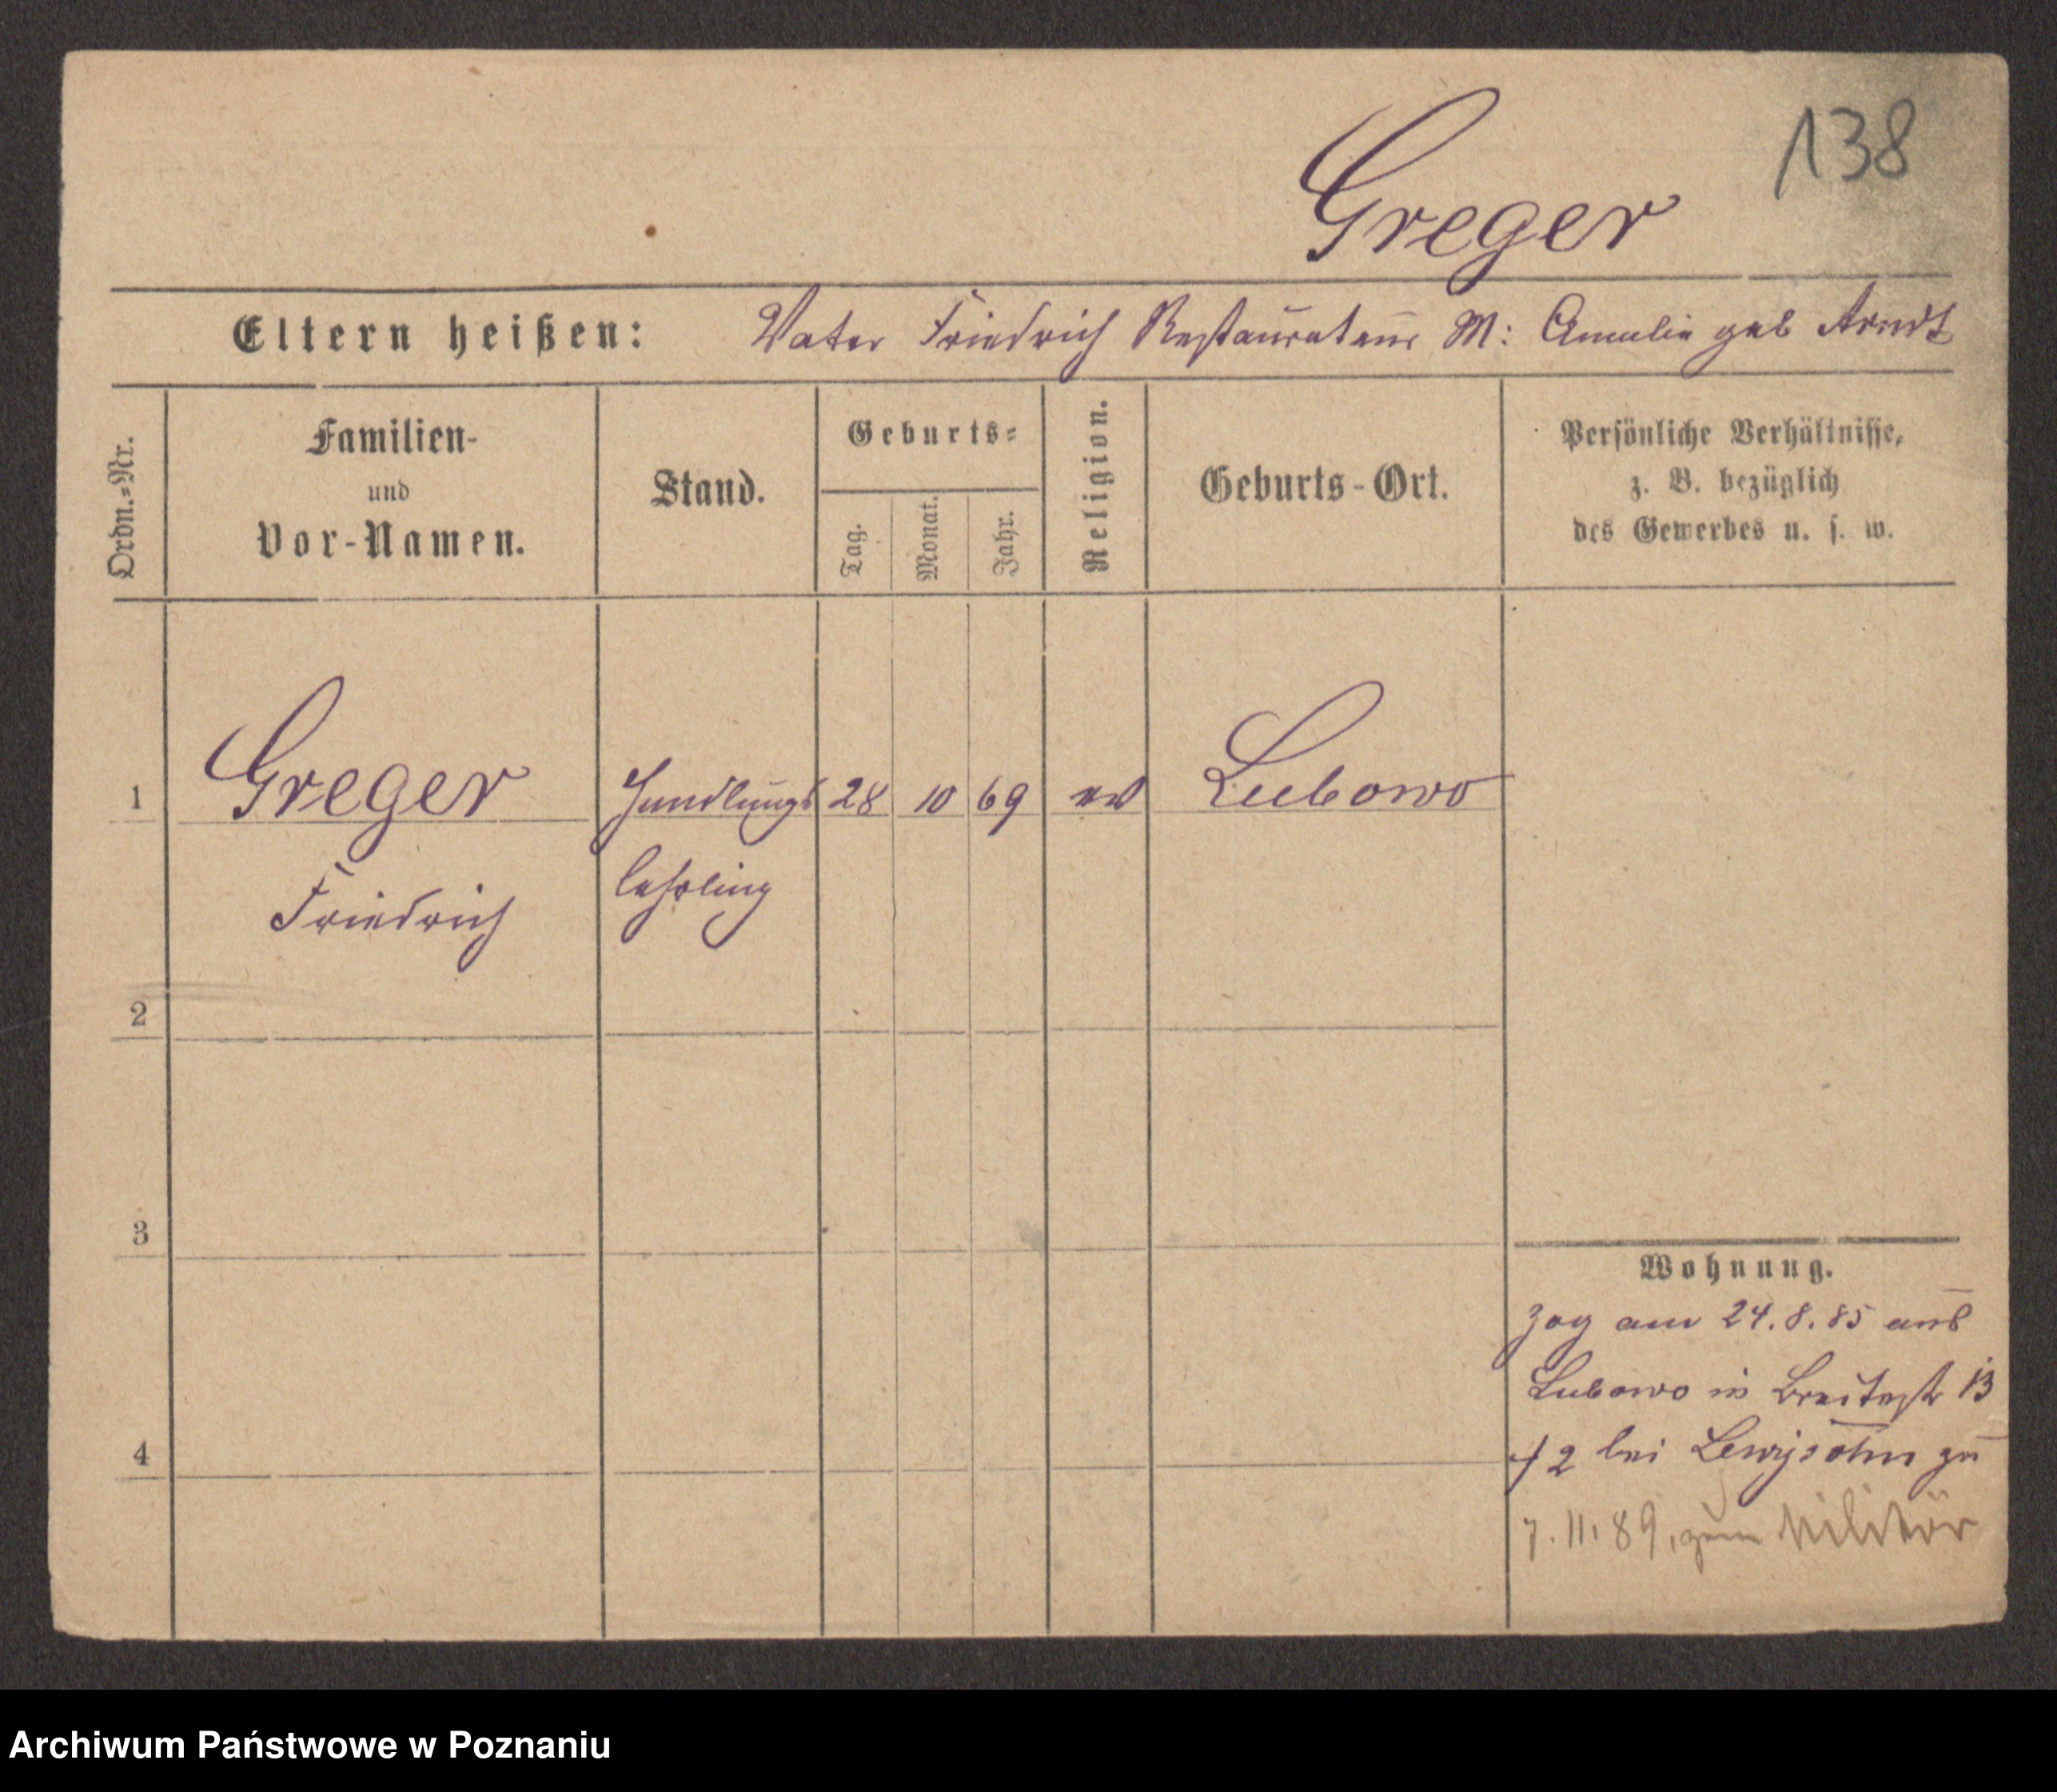 138
Greger
Eltern heißen: Vater Friedrich Restaurateur M: Amalie geb Arndt
Ordn.=Nr.
Familien-
und
Vor-Namen.
Stand.
Geburts=
Tag.
Monat.
Jahr.
Religion.
Geburts-Ort.
Persönliche Verhältnisse,
z. B. bezüglich
des Gewerbes u. s. w.
1 Greger Handlungs 28 10 69 ev Lubowo
Friedrich lehrling
2
3
4
Wohnung.
Zog am 24.8.85 aus
Lubowo in Breitestr 13
2 bei Lewysohn zu
7.11.89, zum Militär
Archiwum Państwowe w Poznaniu